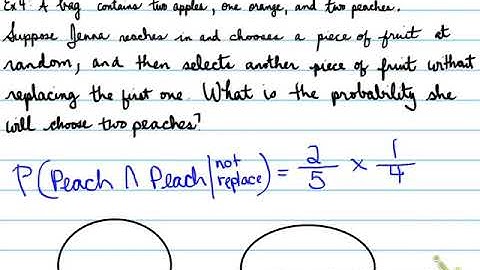 Ex 4: A bag contains two apples, one orange, and two peaches.
Suppose Jenna reaches in and chooses a piece of fruit at
random, and then selects another piece of fruit without
replacing the first one. What is the probability she
will choose two peaches?
P(Peach ∩ Peach | not replace) = 2/5 × 1/4